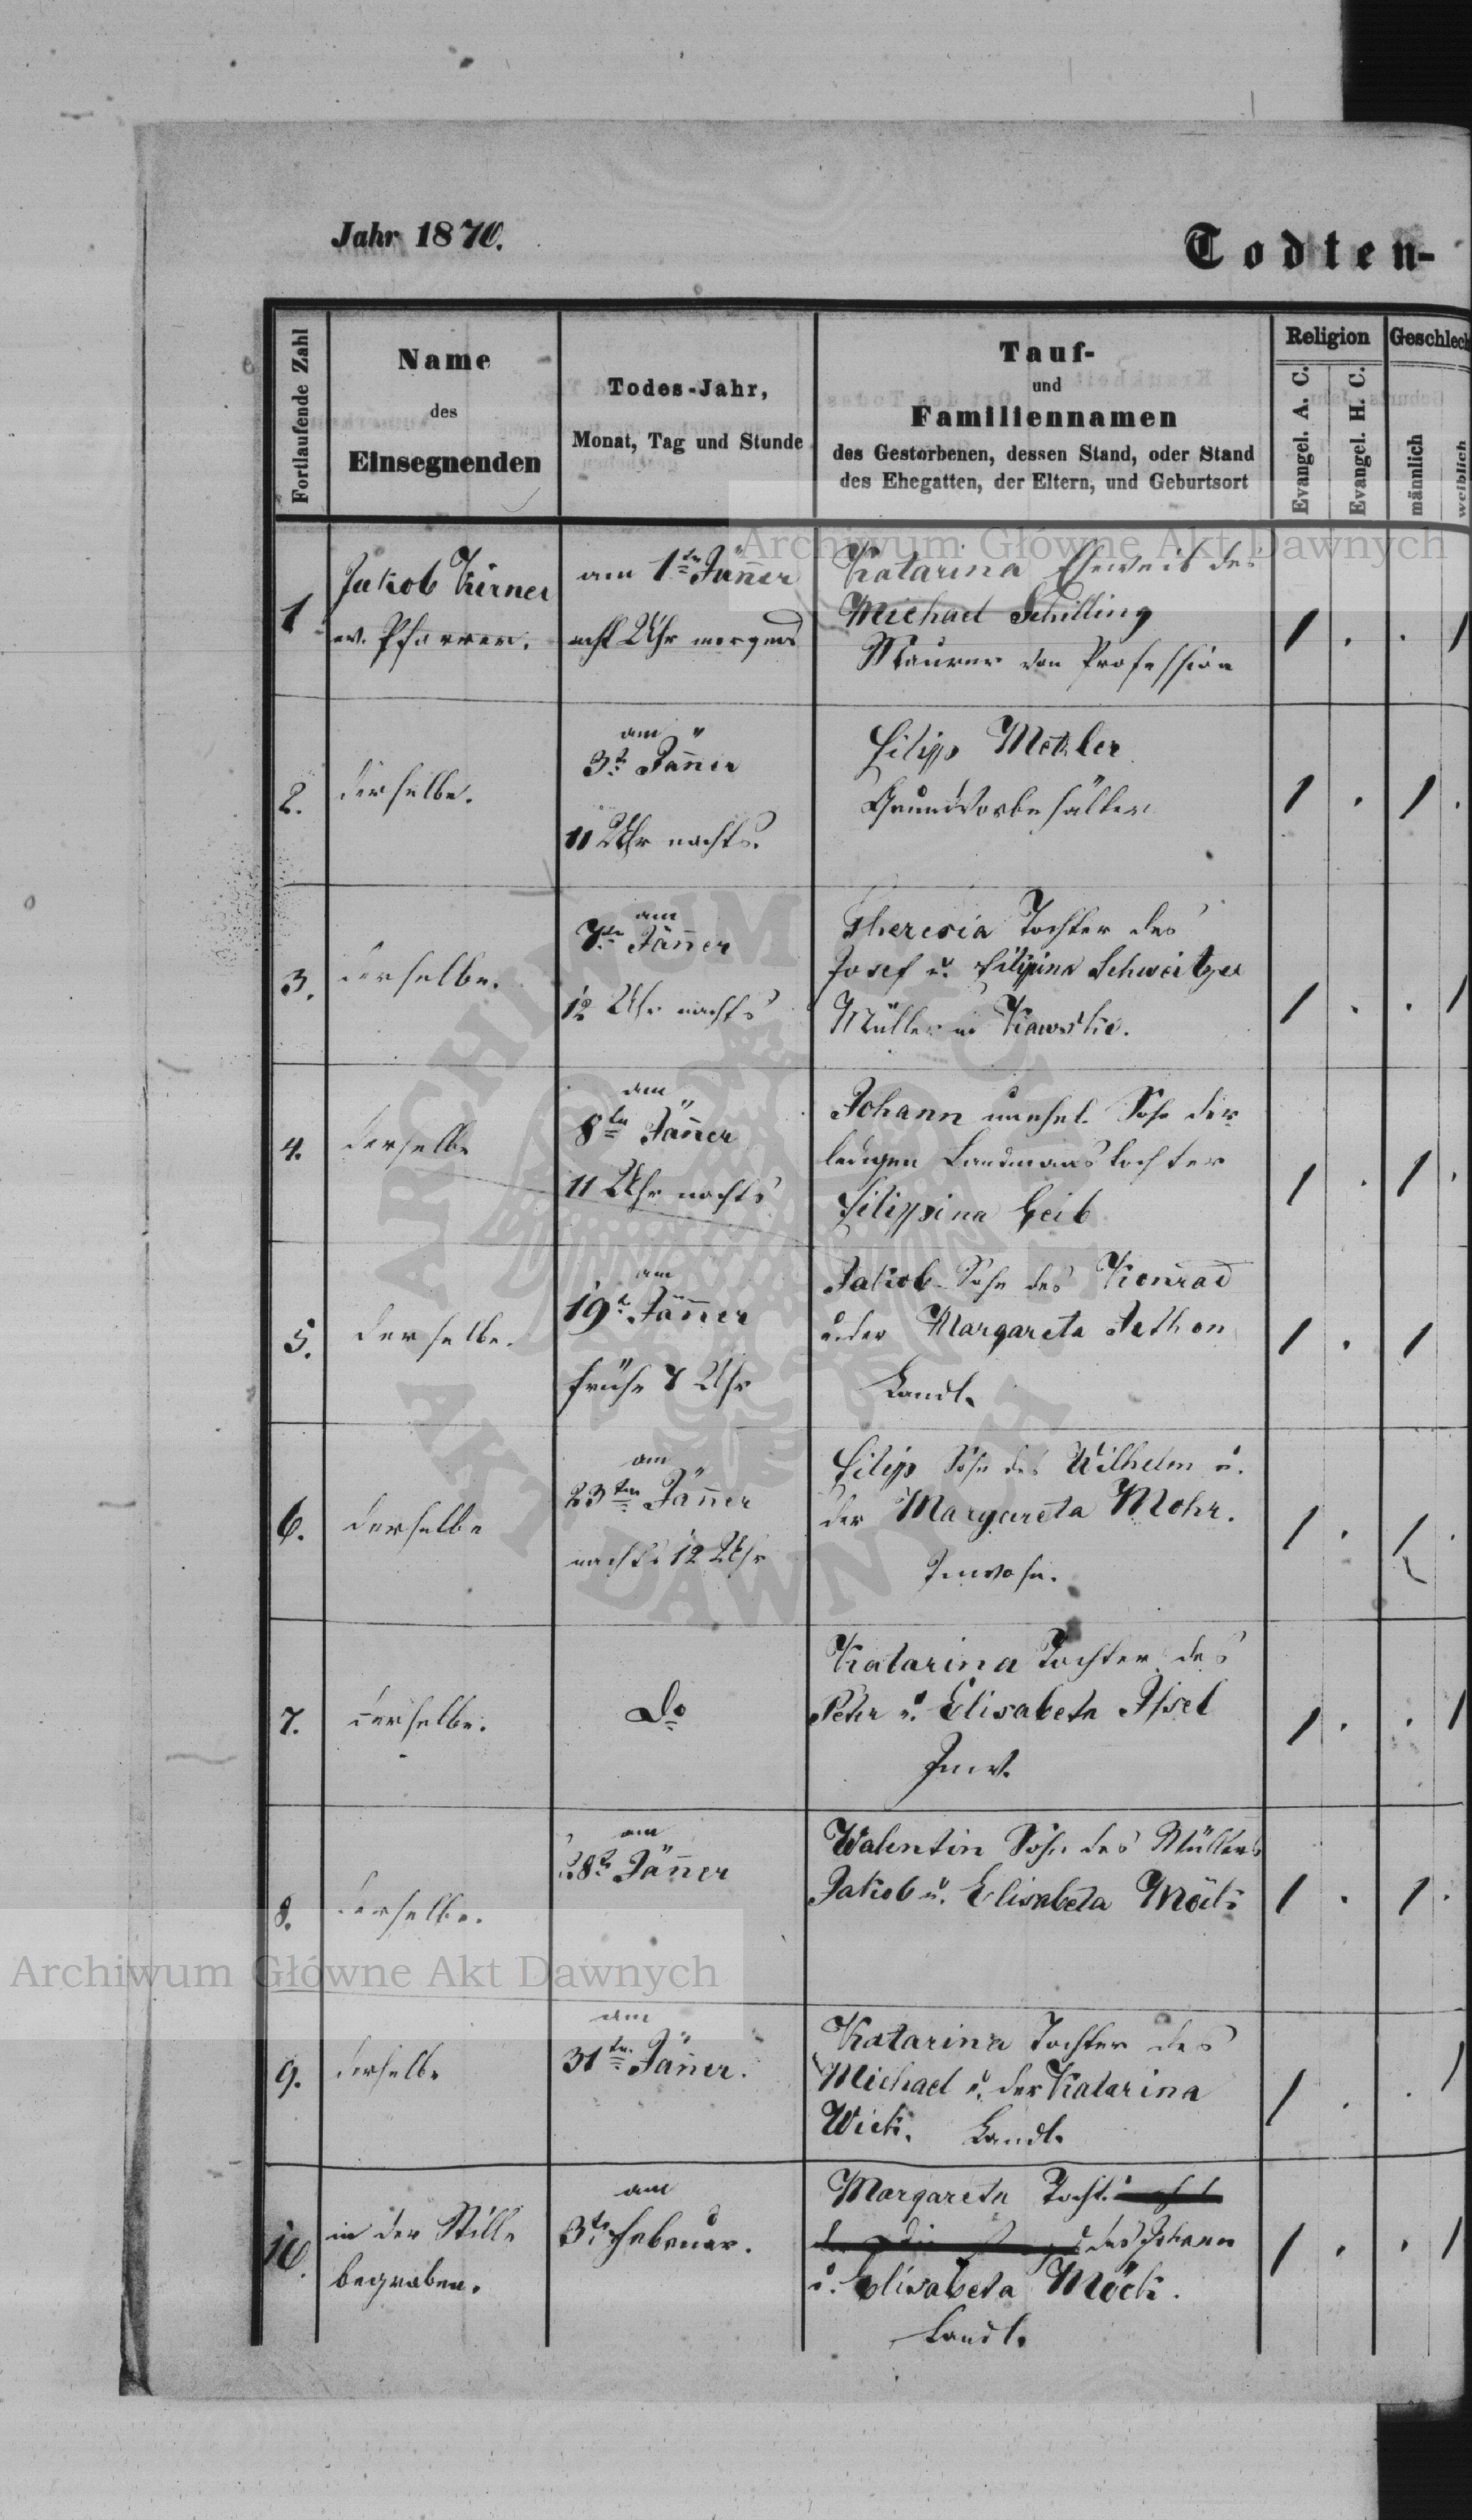 Jahr 1870.
Todten-
Fortlaufende Zahl
Name
des
Einsegnenden
Todes-Jahr,
Monat, Tag und Stunde
Tauf-
und
Familiennamen
des Gestorbenen, dessen Stand, oder Stand
des Ehegatten, der Eltern, und Geburtsort
Religion
Evangel. A. C.
Evangel. H. C.
Geschlech
männlich
weiblich
1
Jakob Kirner
ev. Pfarrer.
am 1ten Jänner
acht Uhr morgens
Katarina Eheweib des
Michael Schilling
Maurer von Profession
1 . . 1
2.
derselbe.
am
3t. Jänner
11 Uhr nachts.
Filipp Metzler
1 . 1 .
3.
derselbe.
am
7ten Jänner
12 Uhr nachts
Theresia Tochter des
Josef u. Filippina Schweitzer
Müller in
1 . . 1
4.
derselbe
am
8ten Jänner
11 Uhr nachts
Johann unehel. Sohn der
ledigen Landmanstochter
Filippina Geib
1 . 1 .
5.
derselbe.
am
19t. Jänner
frühe 7 Uhr
Jakob Sohn des Konrad
u. der Margareta Jethon
Landl.
1 . 1
6.
derselbe
am
23ten Jänner
nachts 12 Uhr
Filipp Sohn des Wilhelm u.
der Margareta Mohr.
Inwohn.
1 . 1 .
7.
derselbe.
do
Katarina Tochter des
Peter u. Elisabeta Issel
Inw.
1 . . 1
8.
derselbe.
am
28t. Jänner
Walentin Sohn des Müllers
Jakob u. Elisabeta Möck
1 . 1 .
9.
derselbe
am
31ten Jänner.
Katarina Tochter des
Michael u. der Katarina
Wick. Landl.
1 . . 1
10.
in der Stille
begraben.
am
3ten Februar.
Margareta Tocht.
des Johann
u. Elisabeta Möck.
Landl.
1 . . 1
Archiwum Główne Akt Dawnych
ARCHIWUM GŁÓWNE
AKT DAWNYCH
Archiwum Główne Akt Dawnych